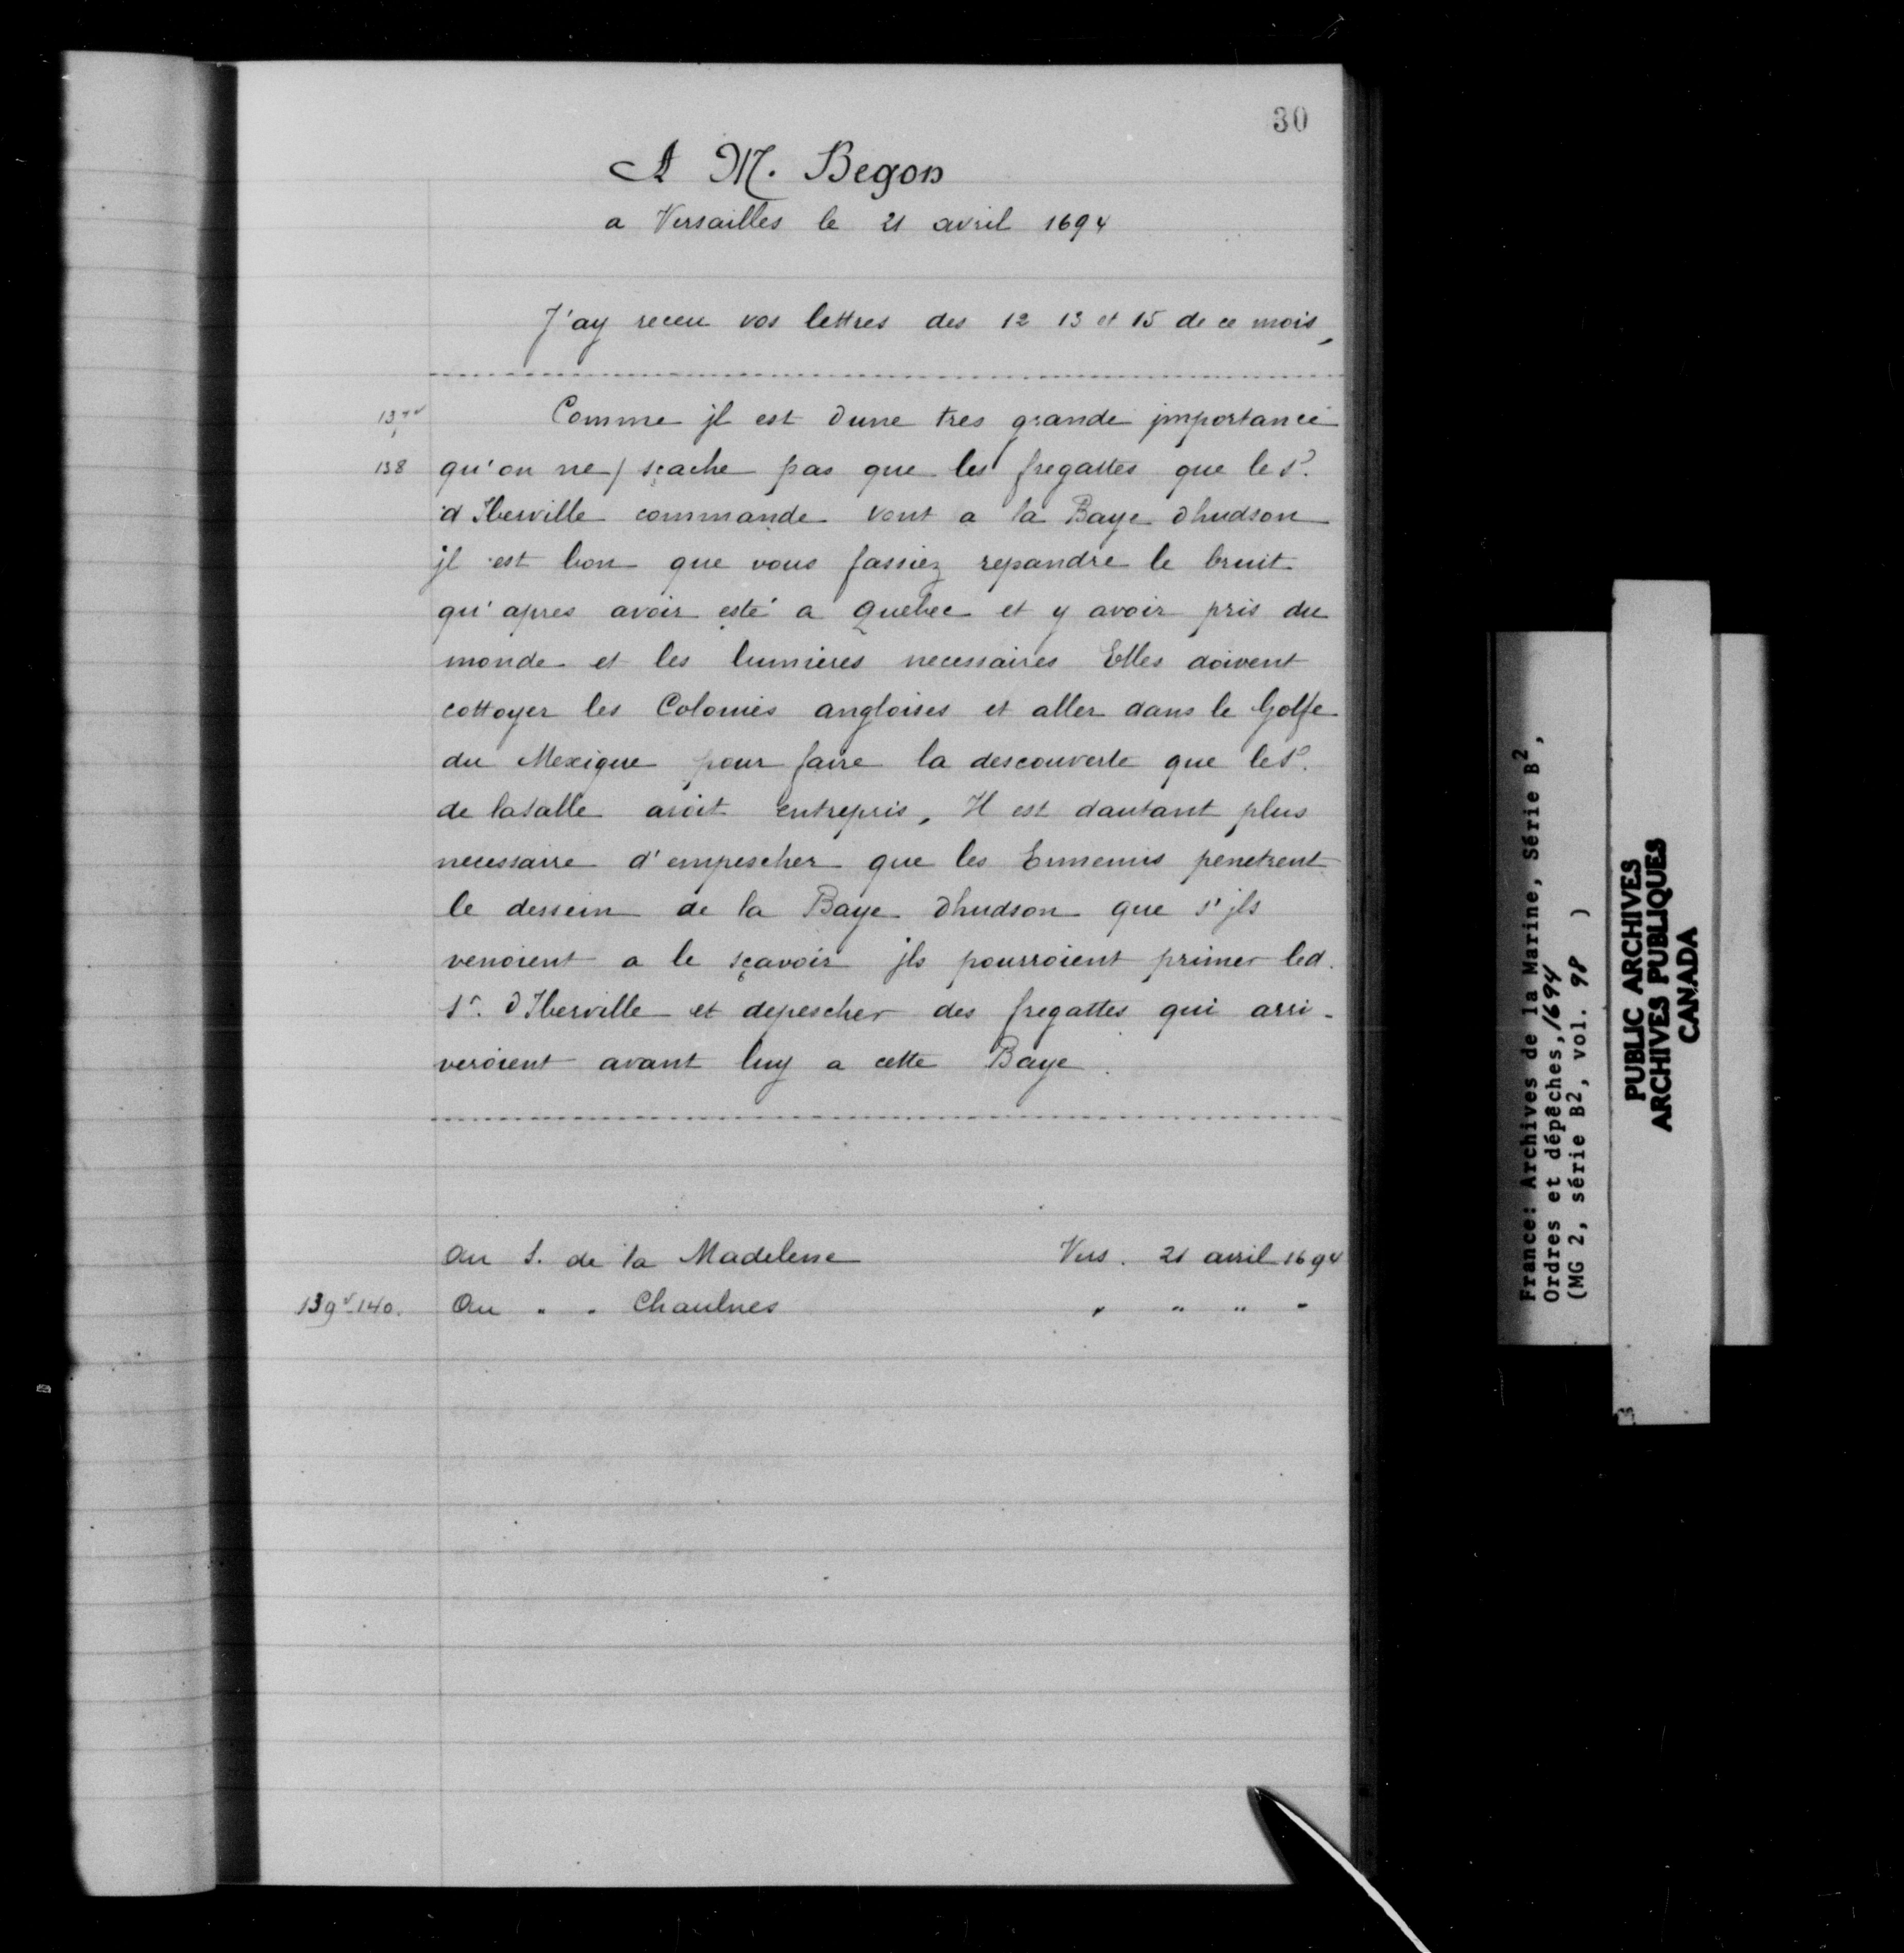 30
A M. Begon
a Versailles le 21 avril 1694
J'ay receu vos lettres des 12 13 et 15 de ce mois,
137v
Comme jl est dune tres grande jmportance
138
qu'on ne / sçache pas que les fregattes que le Sr.
d'Iberville commande vont a la Baye dhudson
jl est bon que vous fassiez repandre le bruit
qu'apres avoir esté a Quebec et y avoir pris du
monde et les lumieres necessaires Elles doivent
cottoyer les Colonies angloises et aller dans le Golfe
du Mexique pour faire la descouverte que le Sr.
de lasalle avoit entrepris, Il est dautant plus
necessaire d'empescher que les Ennemis penetrent
le dessein de la Baye dhudson que s'jls
venoient a le sçavoir jls pourroient primer led.
Sr. dIberville et depescher des fregattes qui arri-
veroient avant luy a cette Baye.
Au S. de la Madelene Vers. 21 avril 1694
139v-140. Au " " Chaulnes " " " "
France: Archives de la Marine, Série B2,
Ordres et dépêches, 1694
(MG 2, série B2, vol. 98 )
PUBLIC ARCHIVES
ARCHIVES PUBLIQUES
CANADA